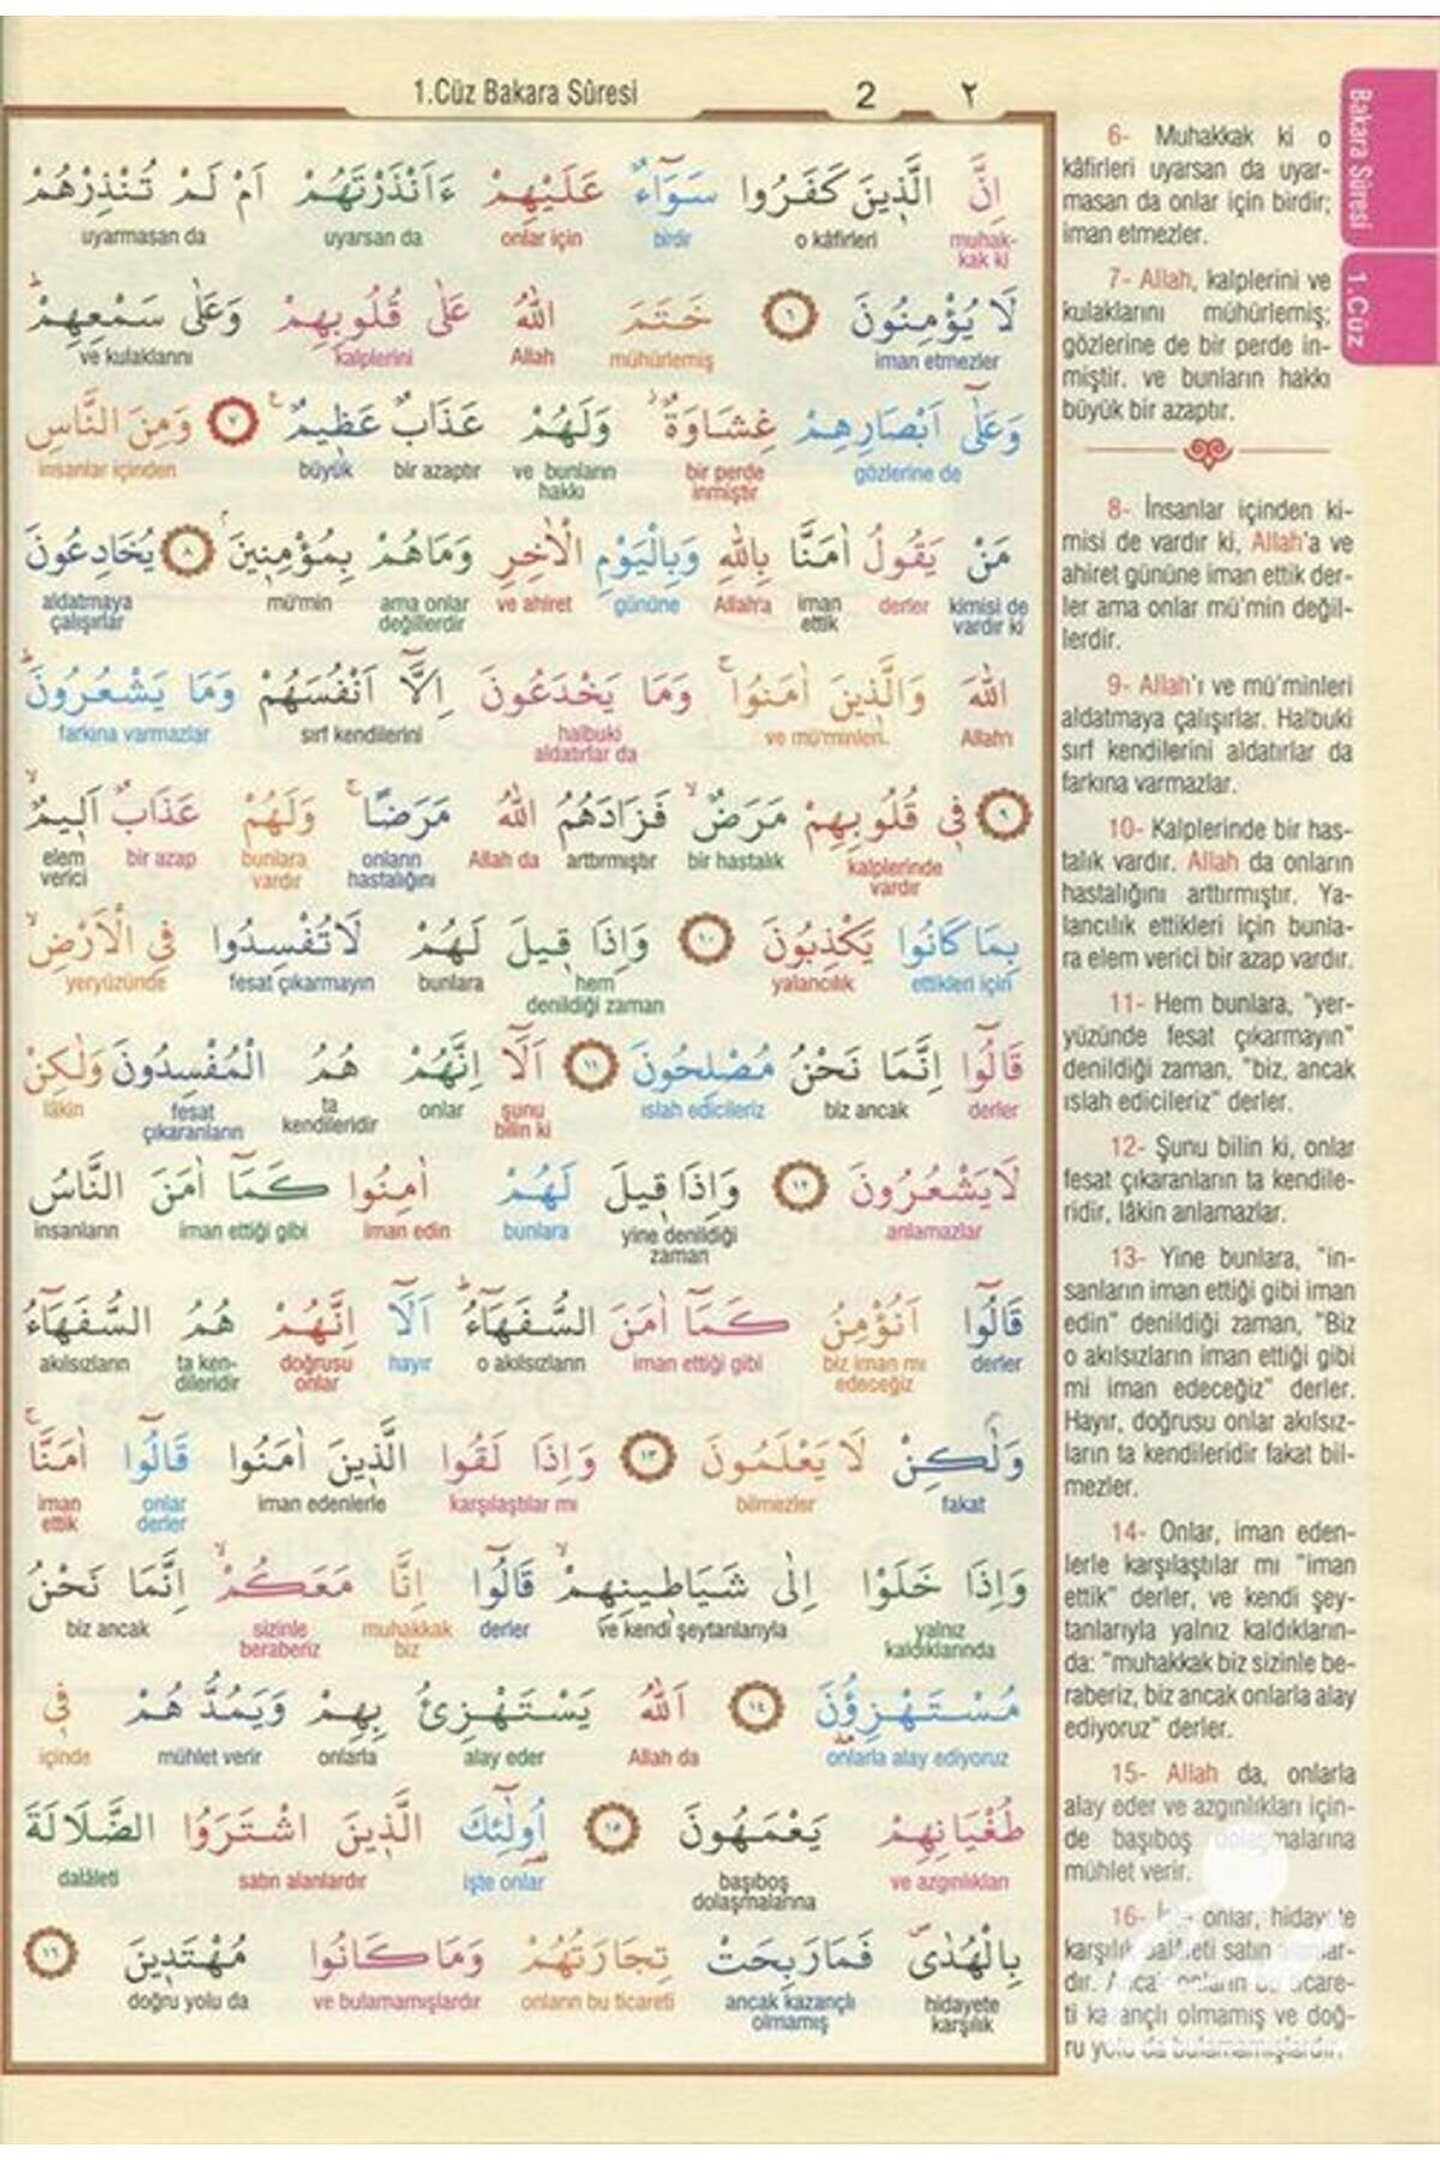 1.Cüz Bakara Sûresi 2 ٢
Bakara Sûresi
1.Cüz
اِنَّ الَّذ۪ينَ كَفَرُوا سَوَٓاءٌ عَلَيْهِمْ ءَاَنْذَرْتَهُمْ اَمْ لَمْ تُنْذِرْهُمْ
muhak- o kâfirleri birdir onlar için uyarsan da uyarmasan da
kak ki
لَا يُؤْمِنُونَ ﴿٦﴾ خَتَمَ اللّٰهُ عَلٰى قُلُوبِهِمْ وَعَلٰى سَمْعِهِمْۜ
iman etmezler mühürlemiş Allah kalplerini ve kulaklarını
وَعَلٰٓى اَبْصَارِهِمْ غِشَاوَةٌۘ وَلَهُمْ عَذَابٌ عَظ۪يمٌ۟ ﴿٧﴾ وَمِنَ النَّاسِ
gözlerine de bir perde ve bunların bir azaptır büyük insanlar içinden
inmiştir hakkı
مَنْ يَقُولُ اٰمَنَّا بِاللّٰهِ وَبِالْيَوْمِ الْاٰخِرِ وَمَاهُمْ بِمُؤْمِن۪ينَۢ ﴿٨﴾ يُخَادِعُونَ
kimisi de derler iman Allah'a gününe ve ahiret ama onlar mü'min aldatmaya
vardır ki ettik değillerdir çalışırlar
اللّٰهَ وَالَّذ۪ينَ اٰمَنُواۚ وَمَا يَخْدَعُونَ اِلَّٓا اَنْفُسَهُمْ وَمَا يَشْعُرُونَۜ
Allah'ı ve mü'minleri. halbuki sırf kendilerini farkına varmazlar
aldatırlar da
﴿٩﴾ ف۪ي قُلُوبِهِمْ مَرَضٌۙ فَزَادَهُمُ اللّٰهُ مَرَضًاۚ وَلَهُمْ عَذَابٌ اَل۪يمٌۙ
kalplerinde bir hastalık arttırmıştır Allah da onların bunlara bir azap elem
vardır hastalığını vardır verici
بِمَا كَانُوا يَكْذِبُونَ ﴿١٠﴾ وَاِذَا ق۪يلَ لَهُمْ لَا تُفْسِدُوا فِي الْاَرْضِۙ
ettikleri için yalancılık hem bunlara fesat çıkarmayın yeryüzünde
denildiği zaman
قَالُٓوا اِنَّمَا نَحْنُ مُصْلِحُونَ ﴿١١﴾ اَلَٓا اِنَّهُمْ هُمُ الْمُفْسِدُونَ وَلٰكِنْ
derler biz ancak ıslah edicileriz şunu onlar ta fesat lâkin
bilin ki kendileridir çıkaranların
لَا يَشْعُرُونَ ﴿١٢﴾ وَاِذَا ق۪يلَ لَهُمْ اٰمِنُوا كَمَٓا اٰمَنَ النَّاسُ
anlamazlar yine denildiği bunlara iman edin iman ettiği gibi insanların
zaman
قَالُٓوا اَنُؤْمِنُ كَمَٓا اٰمَنَ السُّفَهَٓاءُۜ اَلَٓا اِنَّهُمْ هُمُ السُّفَهَٓاءُ
derler biz iman mı iman ettiği gibi o akılsızların hayır doğrusu ta ken- akılsızların
edeceğiz onlar dileridir
وَلٰكِنْ لَا يَعْلَمُونَ ﴿١٣﴾ وَاِذَا لَقُوا الَّذ۪ينَ اٰمَنُوا قَالُٓوا اٰمَنَّاۚ
fakat bilmezler karşılaştılar mı iman edenlerle onlar iman
derler ettik
وَاِذَا خَلَوْا اِلٰى شَيَاط۪ينِهِمْۙ قَالُٓوا اِنَّا مَعَكُمْۙ اِنَّمَا نَحْنُ
yalnız ve kendi şeytanlarıyla derler muhakkak sizinle biz ancak
kaldıklarında biz beraberiz
مُسْتَهْزِؤُ۫نَ ﴿١٤﴾ اَللّٰهُ يَسْتَهْزِئُ بِهِمْ وَيَمُدُّهُمْ ف۪ي
onlarla alay ediyoruz Allah da alay eder onlarla mühlet verir içinde
طُغْيَانِهِمْ يَعْمَهُونَ ﴿١٥﴾ اُو۬لٰٓئِكَ الَّذ۪ينَ اشْتَرَوُا الضَّلَالَةَ
ve azgınlıkları başıboş işte onlar satın alanlardır dalâleti
dolaşmalarına
بِالْهُدٰىۖ فَمَا رَبِحَتْ تِجَارَتُهُمْ وَمَا كَانُوا مُهْتَد۪ينَ ﴿١٦﴾
hidayete ancak kazançlı onların bu ticareti ve bulamamışlardır doğru yolu da
karşılık olmamış
6- Muhakkak ki o
kâfirleri uyarsan da uyar-
masan da onlar için birdir;
iman etmezler.
7- Allah, kalplerini ve
kulaklarını mühürlemiş;
gözlerine de bir perde in-
miştir. ve bunların hakkı
büyük bir azaptır.
8- İnsanlar içinden ki-
misi de vardır ki, Allah'a ve
ahiret gününe iman ettik der-
ler ama onlar mü'min değil-
lerdir.
9- Allah'ı ve mü'minleri
aldatmaya çalışırlar. Halbuki
sırf kendilerini aldatırlar da
farkına varmazlar.
10- Kalplerinde bir has-
talık vardır. Allah da onların
hastalığını arttırmıştır. Ya-
lancılık ettikleri için bunla-
ra elem verici bir azap vardır.
11- Hem bunlara, "yer-
yüzünde fesat çıkarmayın"
denildiği zaman, "biz, ancak
ıslah edicileriz" derler.
12- Şunu bilin ki, onlar
fesat çıkaranların ta kendile-
ridir, lâkin anlamazlar.
13- Yine bunlara, "in-
sanların iman ettiği gibi iman
edin" denildiği zaman, "Biz
o akılsızların iman ettiği gibi
mi iman edeceğiz" derler.
Hayır, doğrusu onlar akılsız-
ların ta kendileridir fakat bil-
mezler.
14- Onlar, iman eden-
lerle karşılaştılar mı "iman
ettik" derler, ve kendi şey-
tanlarıyla yalnız kaldıkların-
da: "muhakkak biz sizinle be-
raberiz, biz ancak onlarla alay
ediyoruz" derler.
15- Allah da, onlarla
alay eder ve azgınlıkları için-
de başıboş dolaşmalarına
mühlet verir.
16- İşte onlar, hidayete
karşılık dalâleti satın alanlar-
dır. Ancak onların bu ticare-
ti kazançlı olmamış ve doğ-
ru yolu da bulamamışlardır.